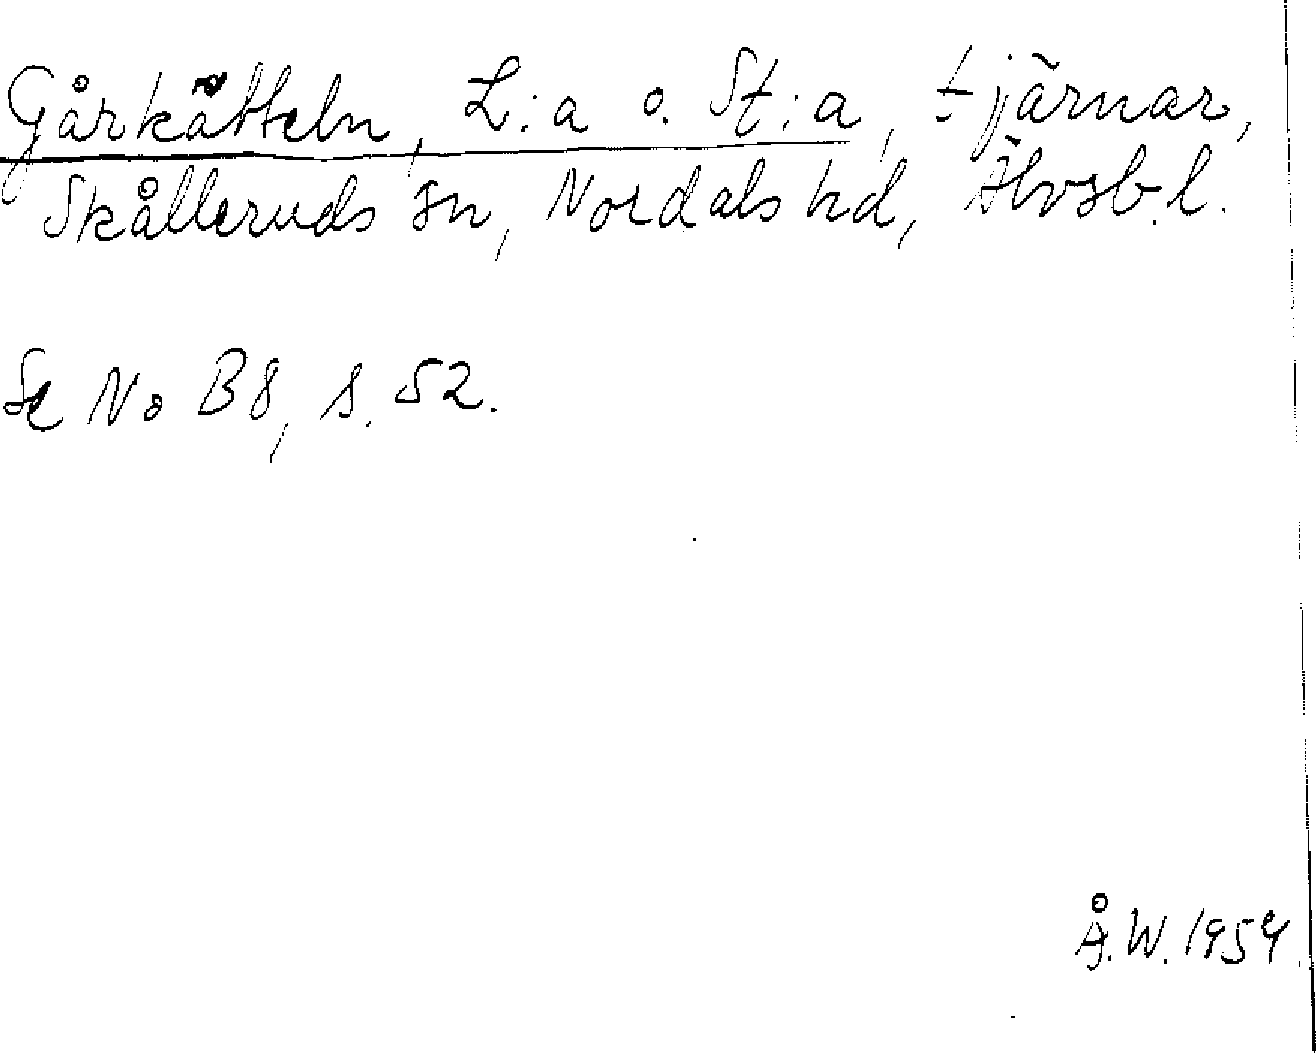 Gårkåtteln, L:a o. St:a, tjärnar,
Skålleruds sn, Nordals hd, Älvsb.l.
Se No B8, s. 52.
Å.W. 1954